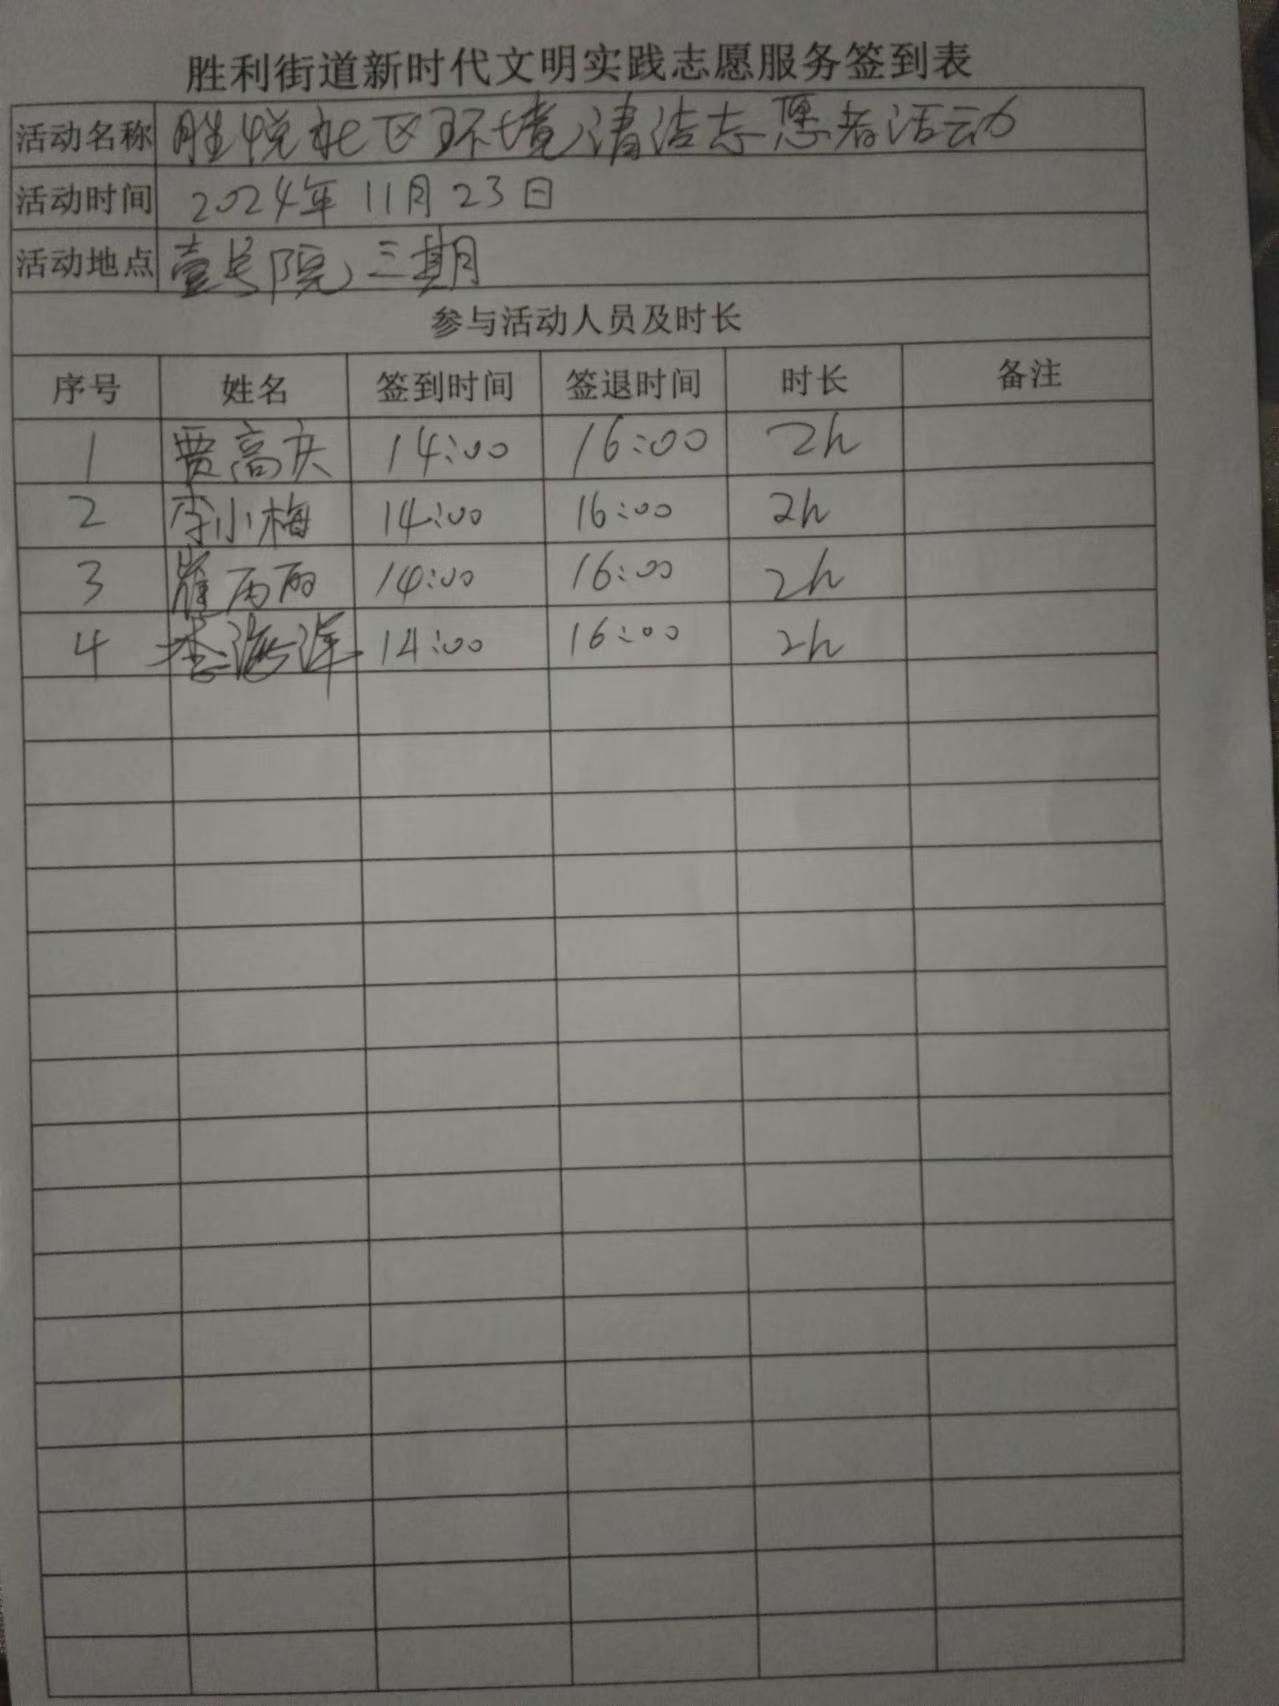 胜利街道新时代文明实践志愿服务签到表
活动名称 胜悦社区环境清洁志愿者活动
活动时间 2024年11月23日
活动地点 壹号院三期
参与活动人员及时长
序号 姓名 签到时间 签退时间 时长 备注
1 贾高庆 14:00 16:00 2h
2 李小梅 14:00 16:00 2h
3 崔丙丽 14:00 16:00 2h
4 李海洋 14:00 16:00 2h